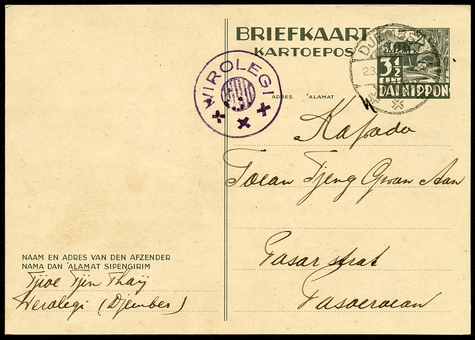 BRIEFKAART
KARTOEPOS
3½
CENT
DAI NIPPON
WIROLEGI
ADRES 'ALAMAT
Kapada
Toean Tjeng Gwan Aan
Pasar straat
Pasoeroean
NAAM EN ADRES VAN DEN AFZENDER
NAMA DAN 'ALAMAT SIPENGIRIM
Tjioe Tjin Thaij
Werolegi (Djember)